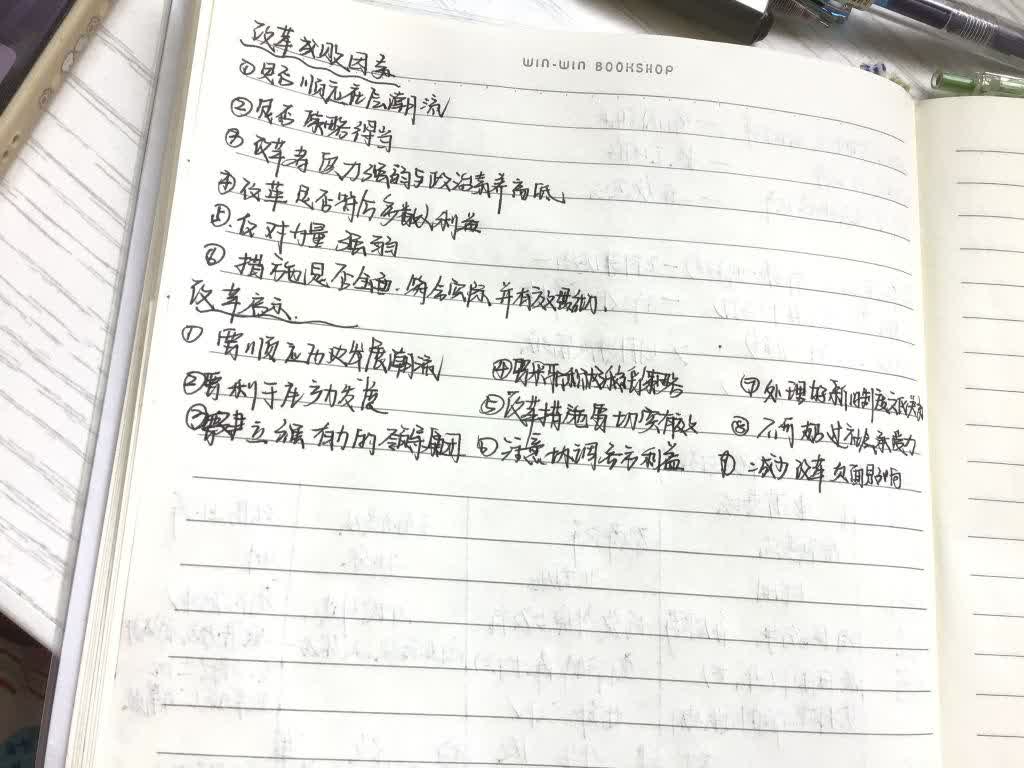 WIN-WIN BOOKSHOP
改革成败因素
①是否顺应社会潮流
②是否策略得当
③改革者 力强弱与政治素养高低
④改革是否符合多数人利益
⑤反对力量强弱
⑥措施是否全面.符合实际,并有效贯彻.
改革启示.
①要顺应历史发展潮流
②要利于生产力发展
③要建立强有力的领导集团
④要采取积极稳妥策略
⑤改革措施要切实有效
⑥注意协调各方利益
⑦处理好新旧制度 关系
⑧不可超过社会承受力
⑨减少改革负面影响